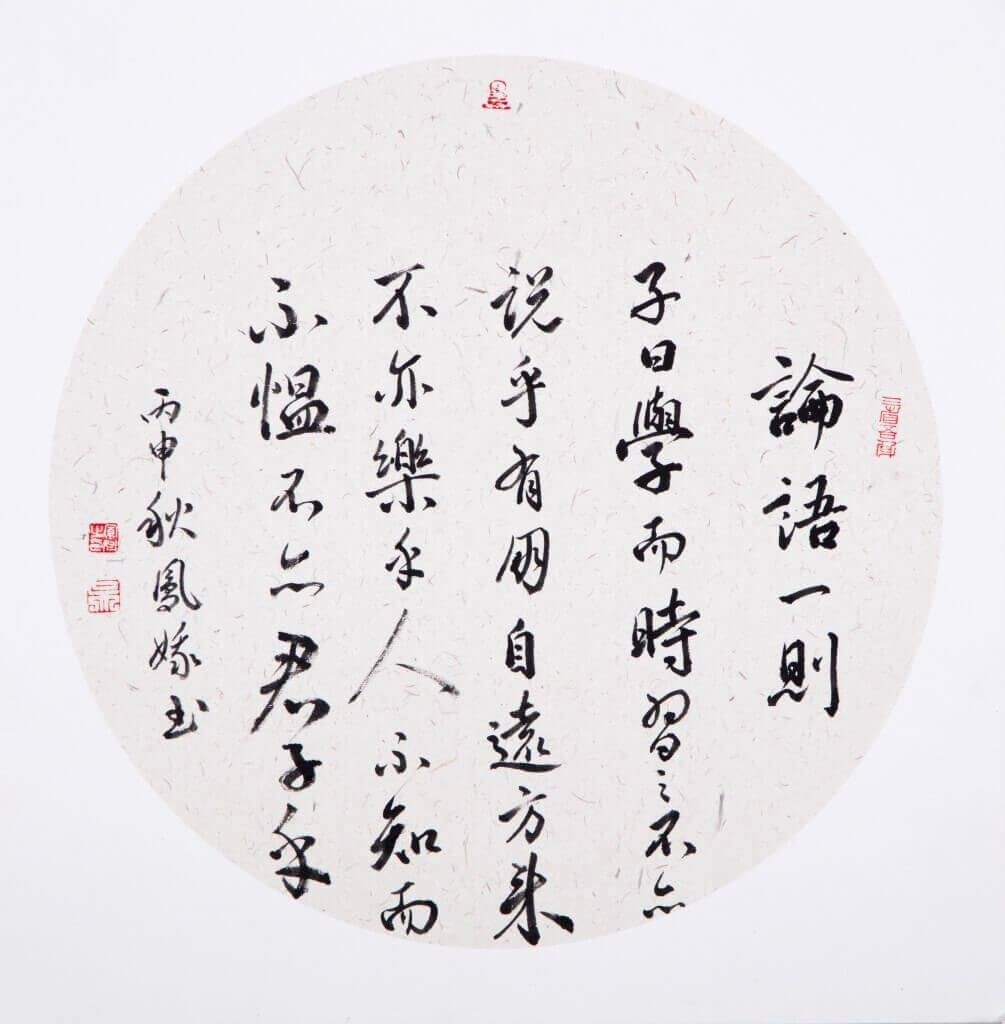 論語一則
子曰學而時習之不亦
説乎有朋自遠方來
不亦樂乎人不知而
不愠不亦君子乎
丙申秋鳳娥書